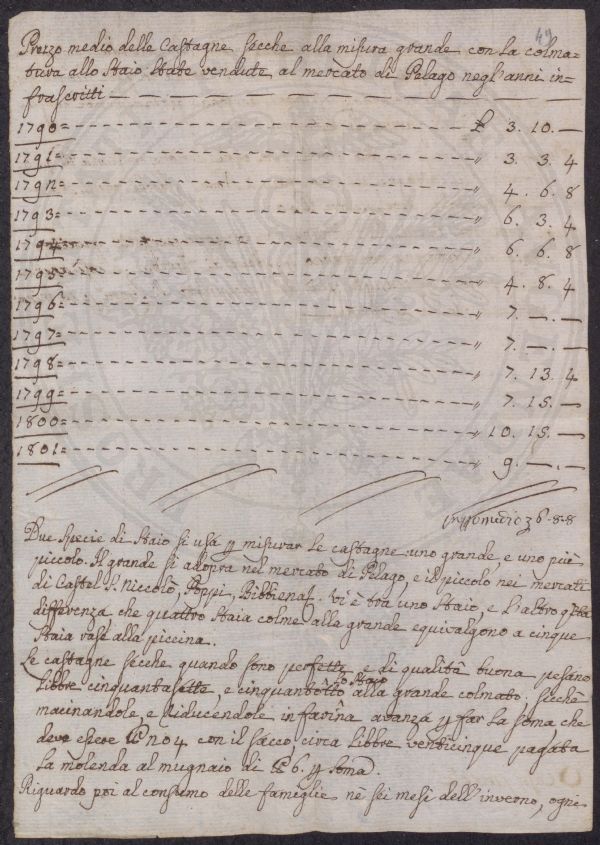 49
Prezzo medio delle Castagne secche alla misura grande con la colma=
tura allo Staio State vendute al mercato di Pelago negl'anni in=
frascritti
1790= £ 3. 10. —
1791= " 3. 3. 4
1792= " 4. 6. 8
1793= " 6. 3. 4
1794= " 6. 6. 8
1795= " 4. 8. 4
1796= " 7. —. —
1797= " 7. —. —
1798= " 7. 13. 4
1799= " 7. 15. —
1800= " 10. 15. —
1801= " 9. —. —
6-8-8
Due specie di Staio si usa p misurar le castagne uno grande, e uno più
piccolo. Il grande si adopra nel mercato di Pelago, e il piccolo nei mercati
di Castel S. Niccolò, Poppi, Bibbiena. Vi è tra uno Staio, e l'altro
differenza che quattro Staia colme alla grande equivalgono a cinque
Staia rase alla piccina.
Le castagne secche quando sono perfette, e di qualità buona pesano
Libbre cinquantasette, e cinquantotto lo Staio alla grande colmato. Sicchè
macinandole, e riducendole in farina avanza p far la soma che
deve essere no 4 con il sacco circa libbre venticinque pagata
la molenda al mugnaio di 6. p soma.
Riguardo poi al consumo delle famiglie nè sei mesi dell'inverno, ogni